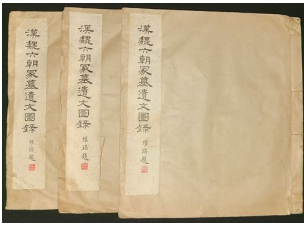 漢魏六朝冢墓遺文圖錄
漢魏六朝冢墓遺文圖錄
漢魏六朝冢墓遺文圖錄